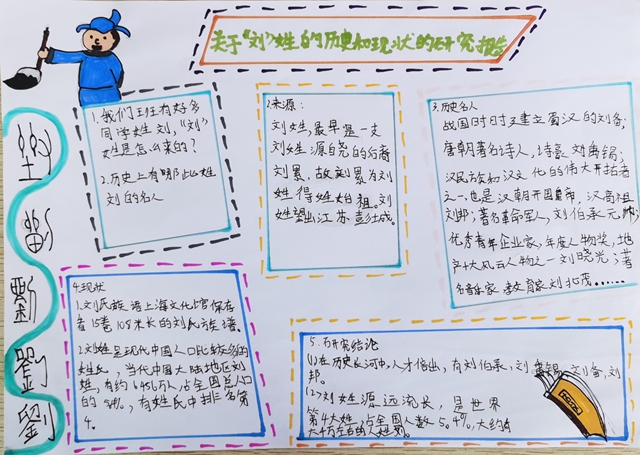 关于“刘”姓的历史和现状的研究报告
劉
劉
劉
1.我们班有好多
同学姓刘,“刘”
姓是怎么来的?
2.历史上有哪些姓
刘的名人
2.来源:
刘姓最早是一支
刘姓源自尧的后裔
刘累,故刘累为刘
姓得姓始祖.刘
姓望出江苏彭城。
3.历史名人
战国时时建立蜀汉的刘备,
唐朝著名诗人,诗豪刘禹锡;
汉民族和汉文化的伟大开拓者
之一.也是汉朝开国皇帝,汉高祖
刘邦;著名革命军人,刘伯承元帅;
优秀青年企业家,年度人物奖,地
产十大风云人物之一刘晓光;著
名音乐家 教育家刘北茂......
4.现状
1.刘氏族谱上海文化馆保存
着15卷108米长的刘氏族谱.
2.刘姓是现代中国人口比较多的
姓氏,当代中国大陆地区刘
姓,有约6450万人,占全国总人口
的 有姓氏中排名第
4.
5.研究结论
(1)在历史长河中,人才倍出,有刘伯承,刘禹锡,刘备,刘
邦。
(2)刘姓源远流长,是世界
第4大姓,占全国人数5.4%,大约有